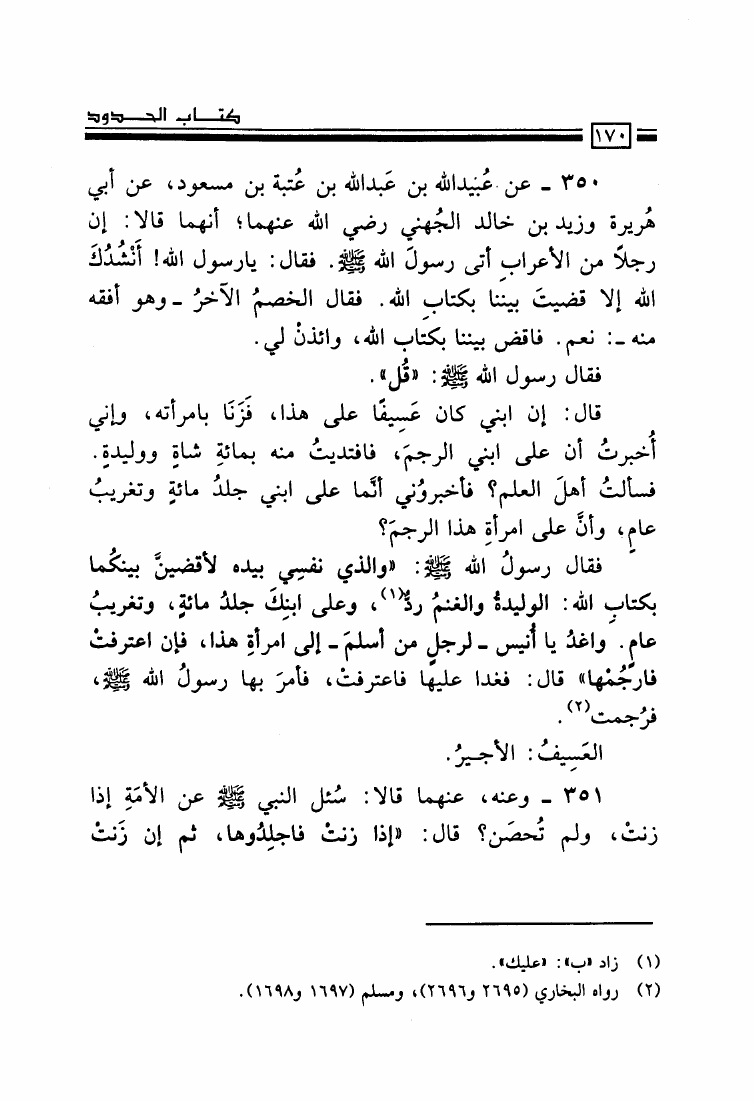 كتـــاب الحـــدود
١٧٠
٣٥٠ ـ عن عُبَيدالله بن عَبدالله بن عُتبة بن مسعود، عن أبي
هُريرة وزيد بن خالد الجُهني رضي الله عنهما؛ أنهما قالا: إن
رجلاً من الأعرابِ أتى رسولَ الله ﷺ. فقال: يارسول الله! أَنْشُدُكَ
الله إلا قضيتَ بيننا بكتابِ الله. فقال الخصمُ الآخرُ ـ وهو أفقه
منه ـ: نعم. فاقض بيننا بكتاب الله، وائذنْ لي.
فقال رسول الله ﷺ: «قُل».
قال: إن ابني كان عَسِيفًا على هذا، فَزَنَا بامرأته، وإني
أُخبرتُ أن على ابني الرجمَ، فافتديتُ منه بمائةِ شاةٍ ووليدةٍ.
فسألتُ أهلَ العلم؟ فأخبروُني أنَّما على ابني جلدُ مائةٍ وتغريبُ
عامٍ، وأنَّ على امرأةِ هذا الرجمَ؟
فقال رسولُ الله ﷺ: «والذي نفسِي بيده لأقضينَّ بينكُما
بكتابِ الله: الوليدةُ والغنمُ ردٌّ(١)، وعلى ابنِكَ جلدُ مائةٍ، وتغريبُ
عامٍ. واغدُ يا أُنيس ـ لرجلٍ من أسلمَ ـ إلى امرأةِ هذا، فإن اعترفتْ
فارجُمْها» قال: فغدا عليها فاعترفتْ، فأمرَ بها رسولُ الله ﷺ،
فرُجمت(٢).
العَسِيفُ: الأجيرُ.
٣٥١ ـ وعنه، عنهما قالا: سُئل النبي ﷺ عن الأمَةِ إذا
زنتْ، ولم تُحصَن؟ قال: «إذا زنتْ فاجلِدُوها، ثم إن زَنتْ
(١) زاد «ب»: «عليك».
(٢) رواه البخاري (٢٦٩٥ و٢٦٩٦)، ومسلم (١٦٩٧ و١٦٩٨).